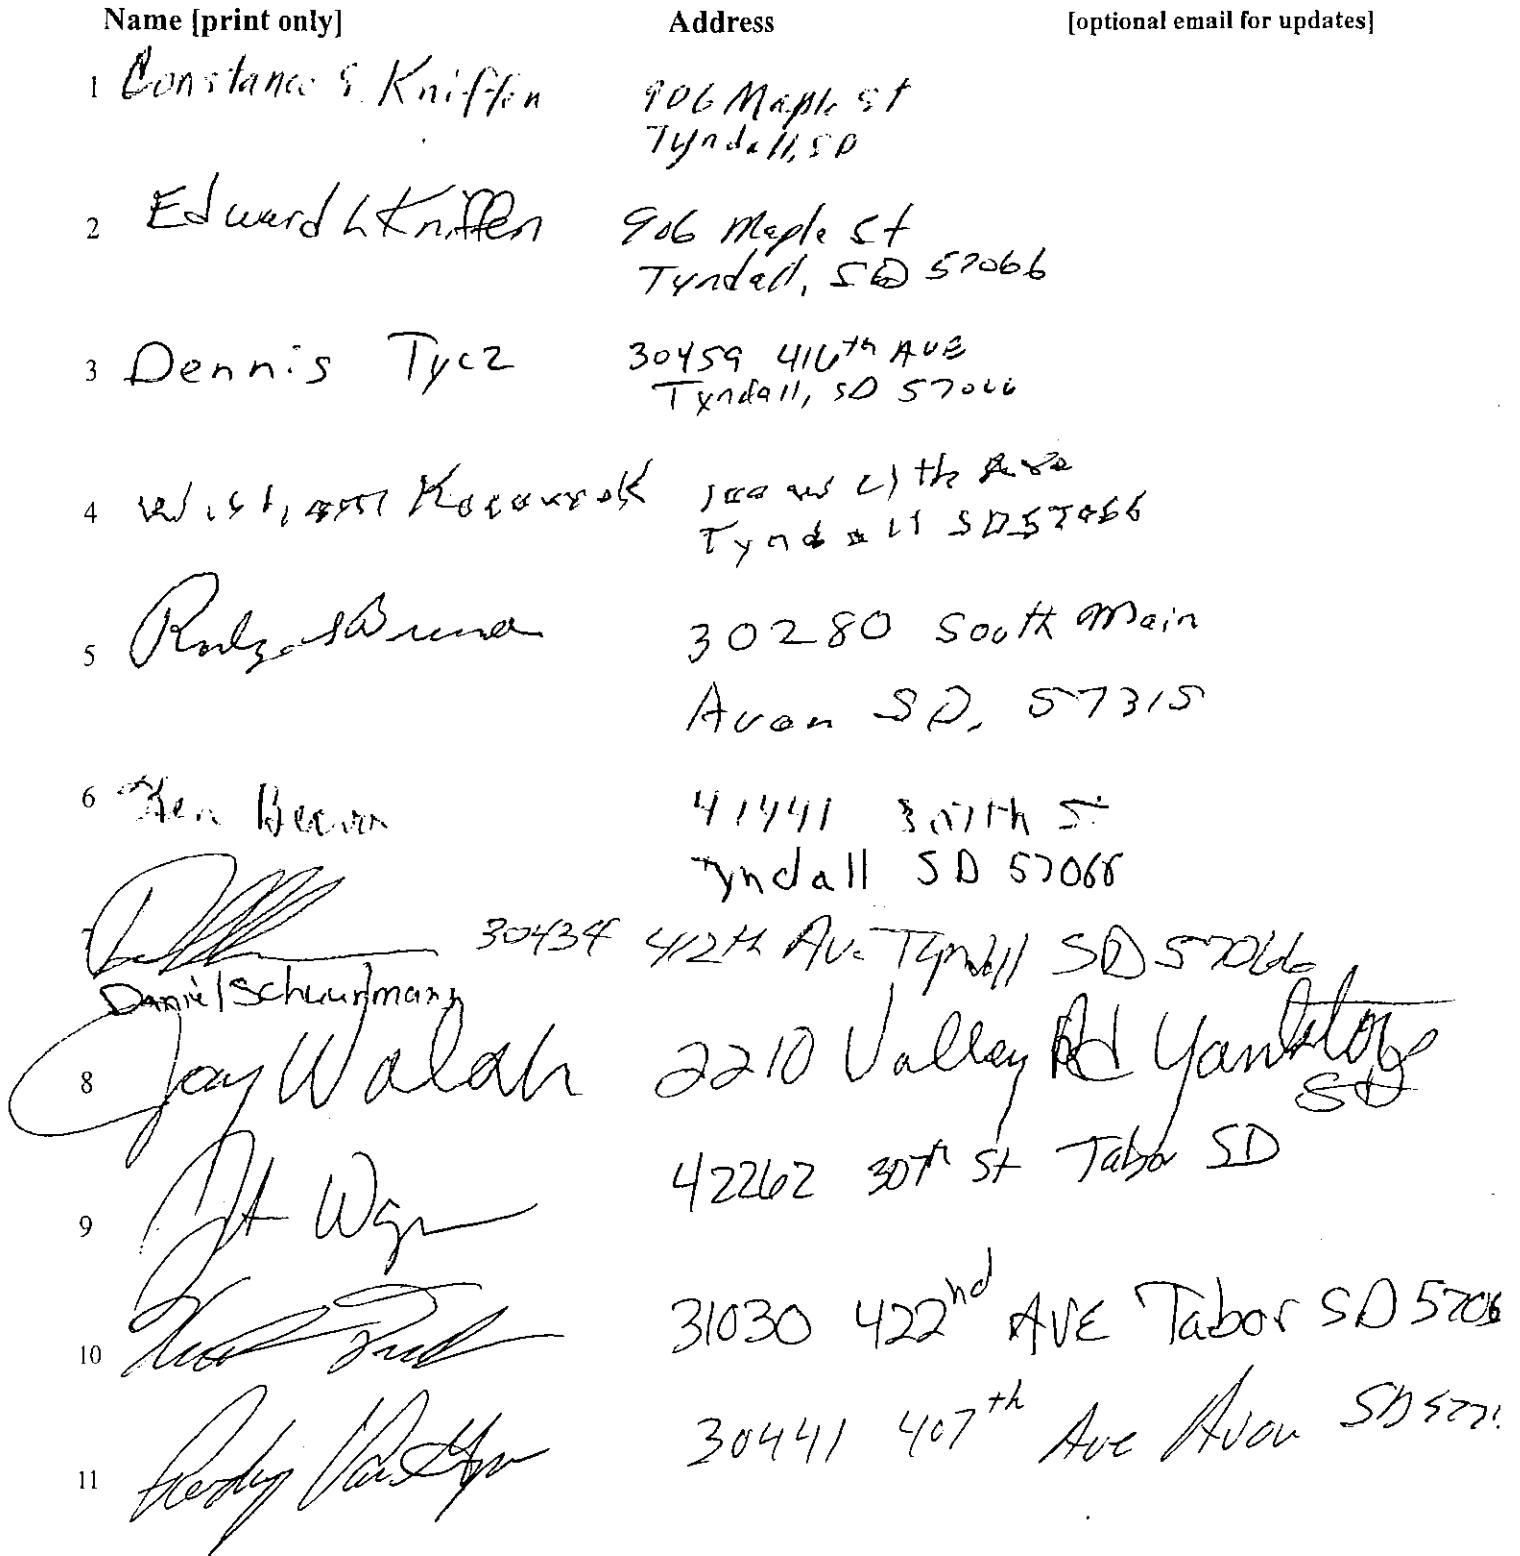 Name [print only] Address [optional email for updates]
1 Constance S. Kniffen 906 Maple St
Tyndall, SD
2 Edward L Kniffen 906 Maple St
Tyndall, SD 57066
3 Dennis Tycz 30459 416th AVE
Tyndall, SD 57066
4 the Ave
Tyndall SD 57066
5 30280 South Main
Avon SD, 57315
6 Ken 41441 St
Tyndall SD 57066
7 30434 412th Av. Tyndall SD 57066
Daniel Schuurmans
8 Jay Walsh 2210 Valley Rd Yankton
SD
9 42262 307th St Tabor SD
10 31030 422nd AVE Tabor SD 5706
11 30441 407th Ave Avon SD